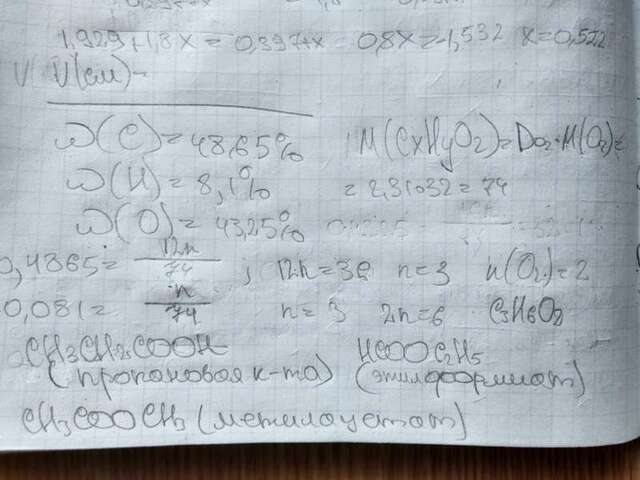 1,929+1,8x = 0,397+x 0,8x=-1,532 x=0,522
V(см)-
ω(C)=48,65% M(CxHyO2)=DO2·M(O2)=
ω(H)=8,1% =2,31·32=74
ω(O)=43,25%
0,4865=12n/74; 12n=36 n=3 n(O2)=2
0,081=n/74 n=3 2n=6 C3H6O2
CH3CH2COOH HCOOC2H5
(пропановая к-та) (этилформиат)
CH3COOCH3 (метилацетат)